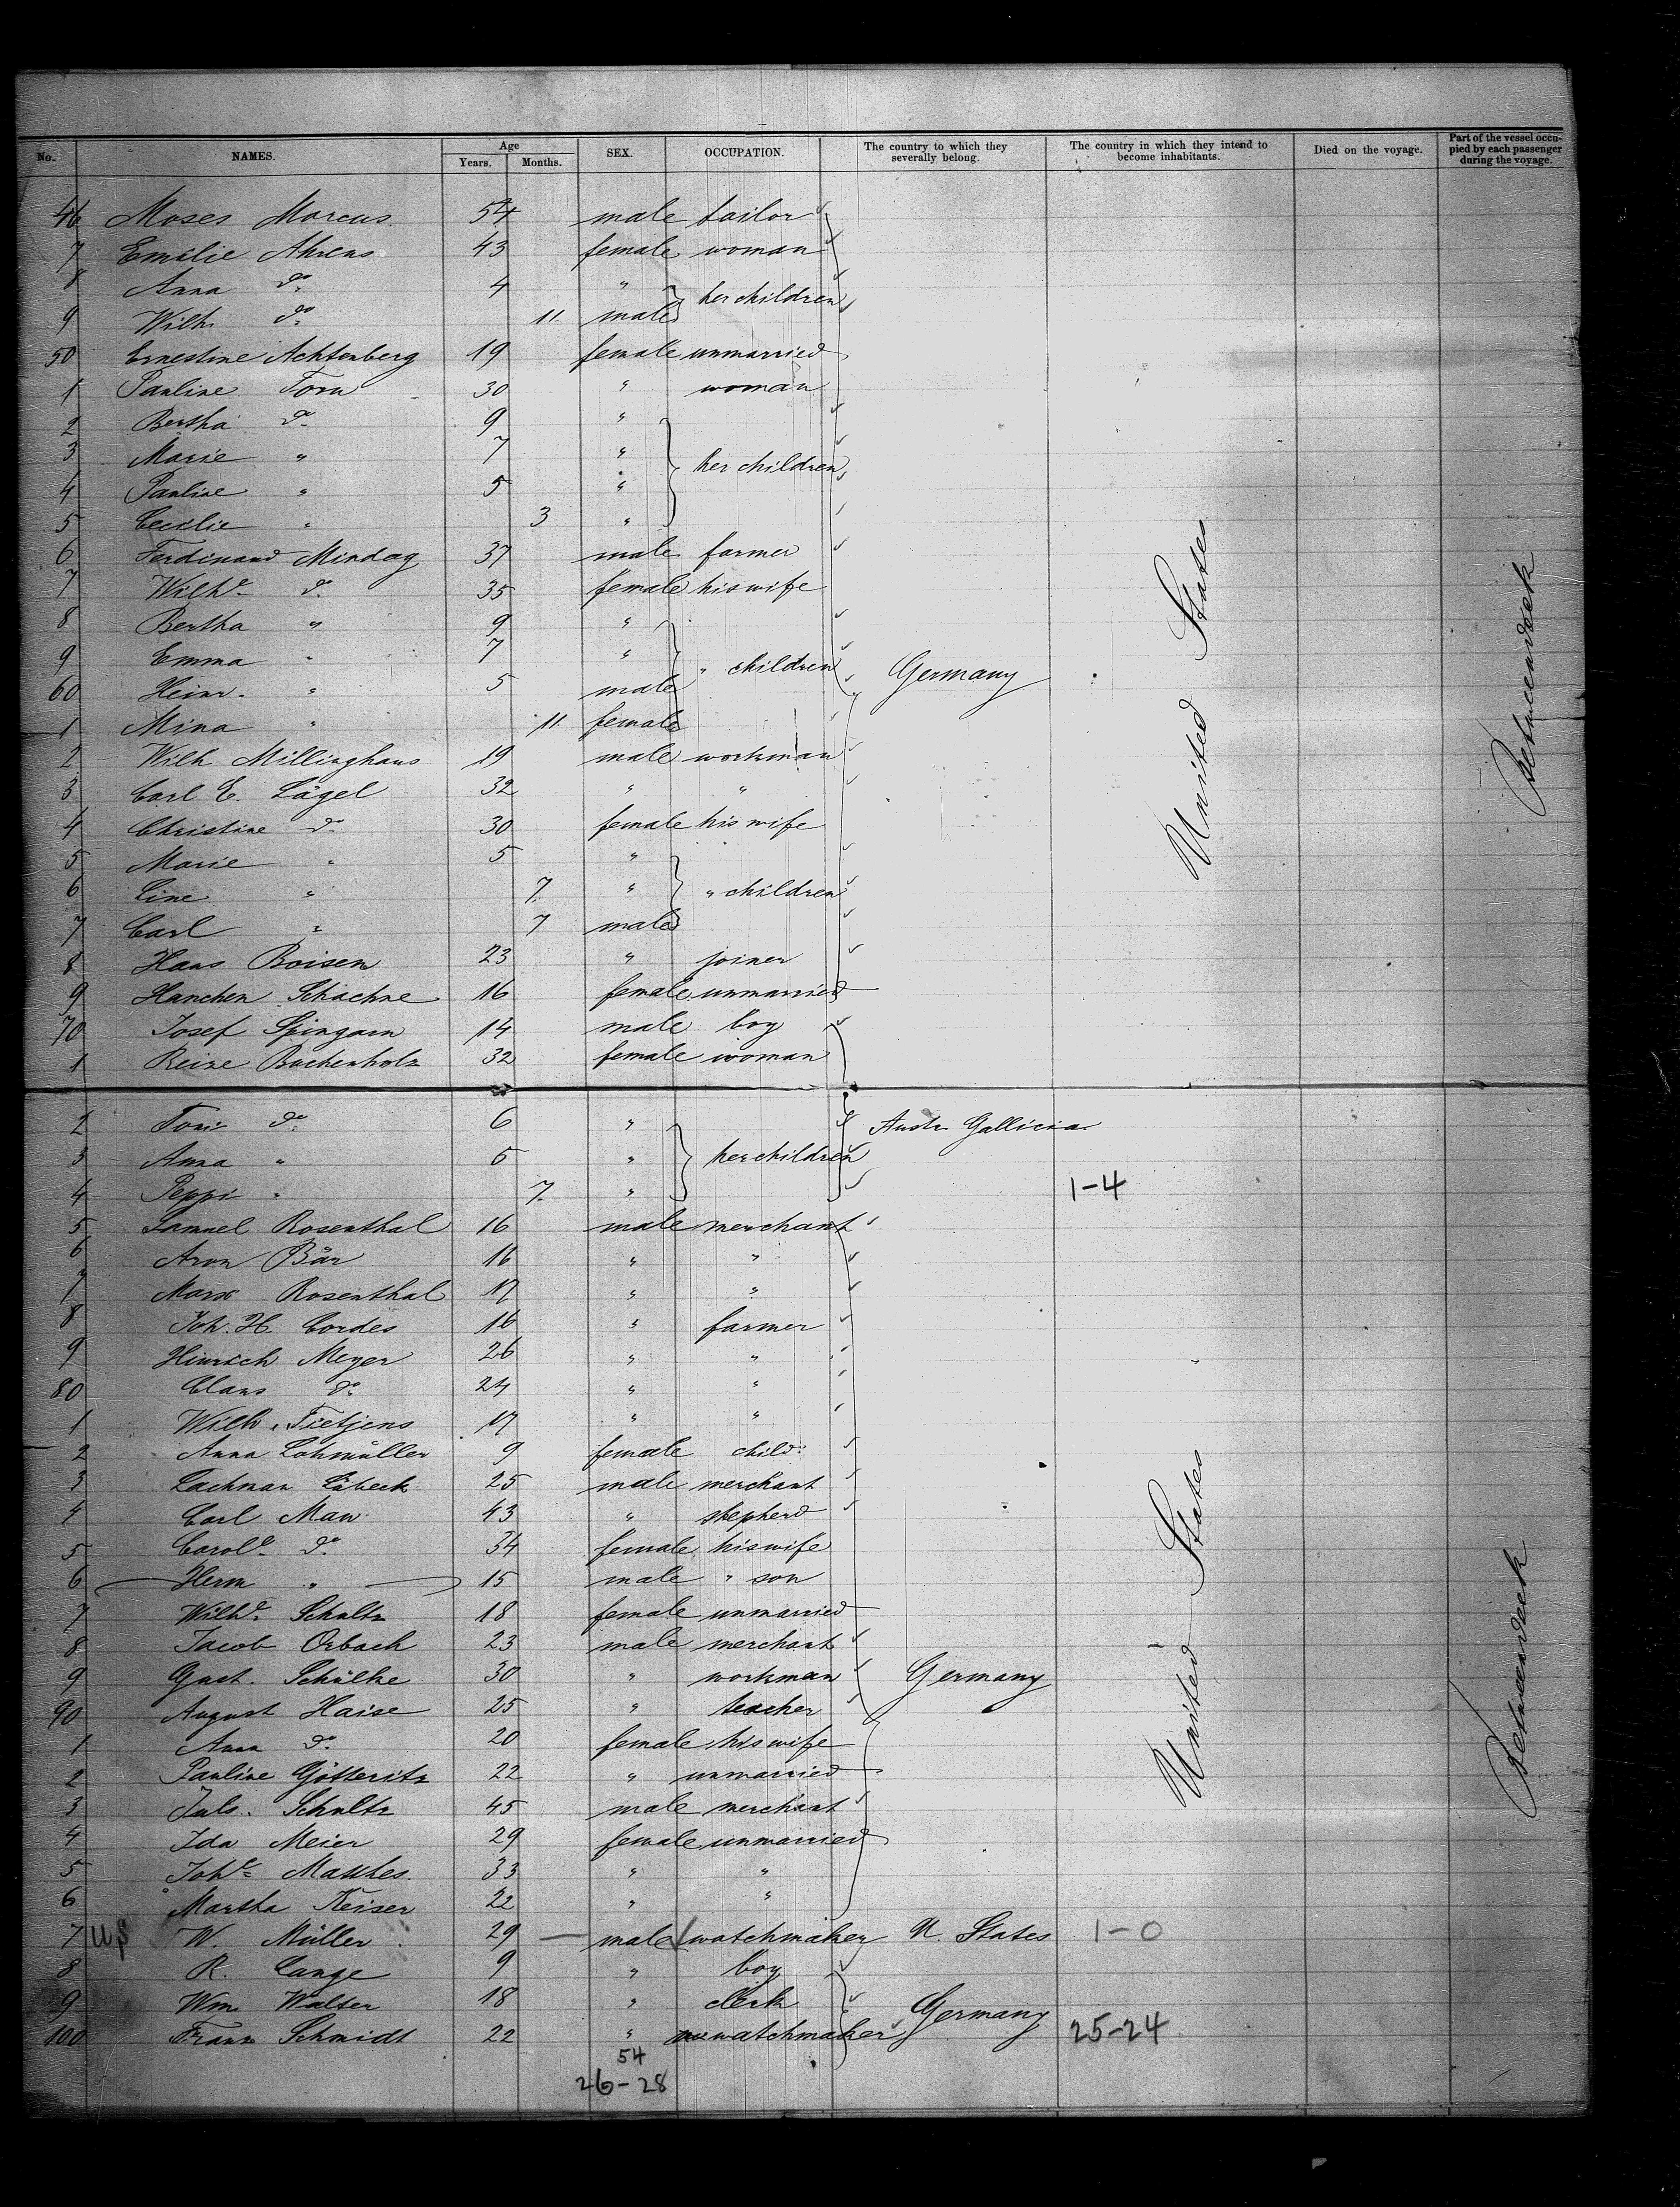 No. NAMES. Age Years. Months. SEX. OCCUPATION. The country to which they severally belong. The country in which they intend to become inhabitants. Died on the voyage. Part of the vessel occupied by each passenger during the voyage.
46 Moses Marcus 54 male tailor
7 Emilie Ahrens 43 female woman
8 Anna do 4 " her children
9 Wilh. do 11 male
50 Ernestine Achtenberg 19 female unmarried
1 Pauline Torn 30 " woman
2 Bertha do 9 "
3 Marie " 7 " her children
4 Pauline " 5 "
5 Cecilie " 3 "
6 Ferdinand Mindag 37 male farmer
7 Wilhe. do 35 female his wife
8 Bertha " 9 "
9 Emma " 7 " " children Germany
60 Heinr. " 5 male
1 Mina " 11 female
2 Wilh Millinghaus 19 male workman
3 Carl E. Lägel 32 " "
4 Christine do 30 female his wife
5 Marie " 5 "
6 Line " 7 " " children
7 Carl " 7 male
8 Hans Boisen 23 " joiner
9 Hanchen Schachne 16 female unmarried
70 Josef Spingarn 14 male boy
1 Reize Buchenholz 32 female woman
United States
Betweendeck
2 Toni do 6 " Austr. Gallicia
3 Anna " 5 " her children
4 Peppi " 7 " 1-4
5 Samuel Rosenthal 16 male merchant
6 Aron Bär 16 " "
7 Marx Rosenthal 17 " "
8 Joh. H. Cordes 16 " farmer
9 Hinrich Meyer 26 " "
80 Claus do 24 " "
1 Wilh. Tietjens 17 " "
2 Anna Lohmüller 9 female child
3 Lachman Lübeck 25 male merchant
4 Carl Maw 43 " shepherd
5 Carole. do 34 female his wife
6 Herm " 15 male " son
7 Wilhe. Schultz 18 female unmarried
8 Jacob Orbach 23 male merchant
9 Gust. Schülke 30 " workman Germany
90 August Haise 25 " teacher
1 Anna do 20 female his wife
2 Pauline Götteritz 22 " unmarried
3 Juls. Schultz 45 male merchant
4 Ida Meier 29 female unmarried
5 Johe. Matthes 33 " "
6 Martha Keiser 22 " "
7 US W. Müller 29 — male watchmaker U. States 1-0
8 R. Lange 9 " boy
9 Wm. Walter 18 " clerk Germany
100 Franz Schmidt 22 " watchmaker 25-24
United States
Betweendeck
54
26-28